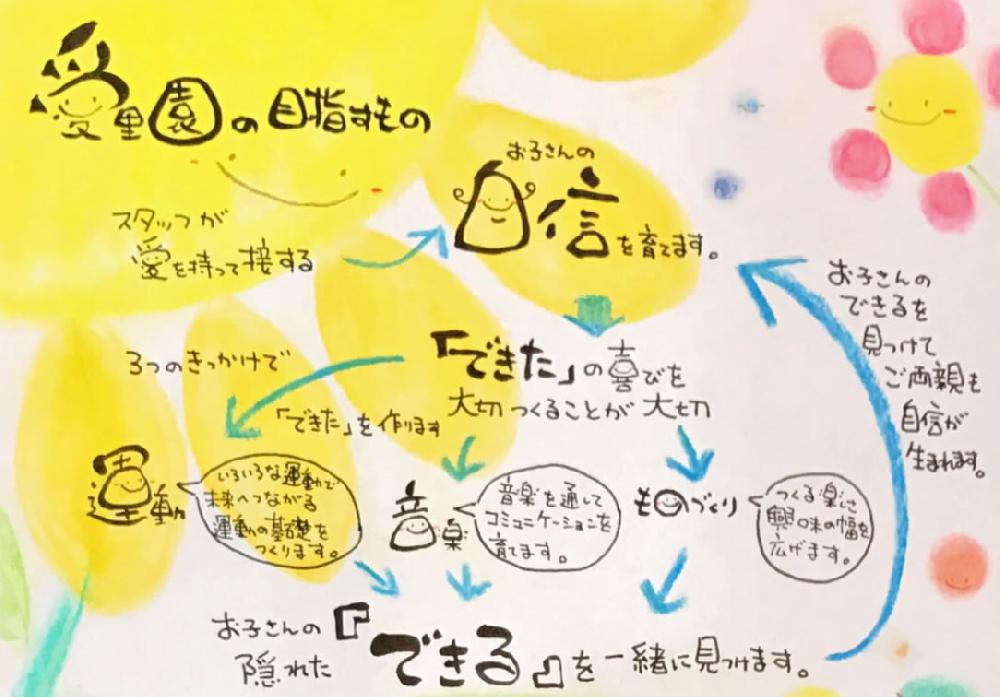 愛里園の目指すもの
スタッフが
愛を持って接する
お子さんの
自信を育てます。
「できた」の喜びを
大切つくることが大切
3つのきっかけで
「できた」を作ります
運動
いろいろな運動で
未来へつながる
運動の基礎を
つくります。
音楽
音楽を通して
コミュニケーションを
育てます。
ものづくり
つくる楽しさ
興味の幅を
広げます。
お子さんの
隠れた
『できる』を一緒に見つけます。
お子さんの
できるを
見つけて
ご両親も
自信が
生まれます。